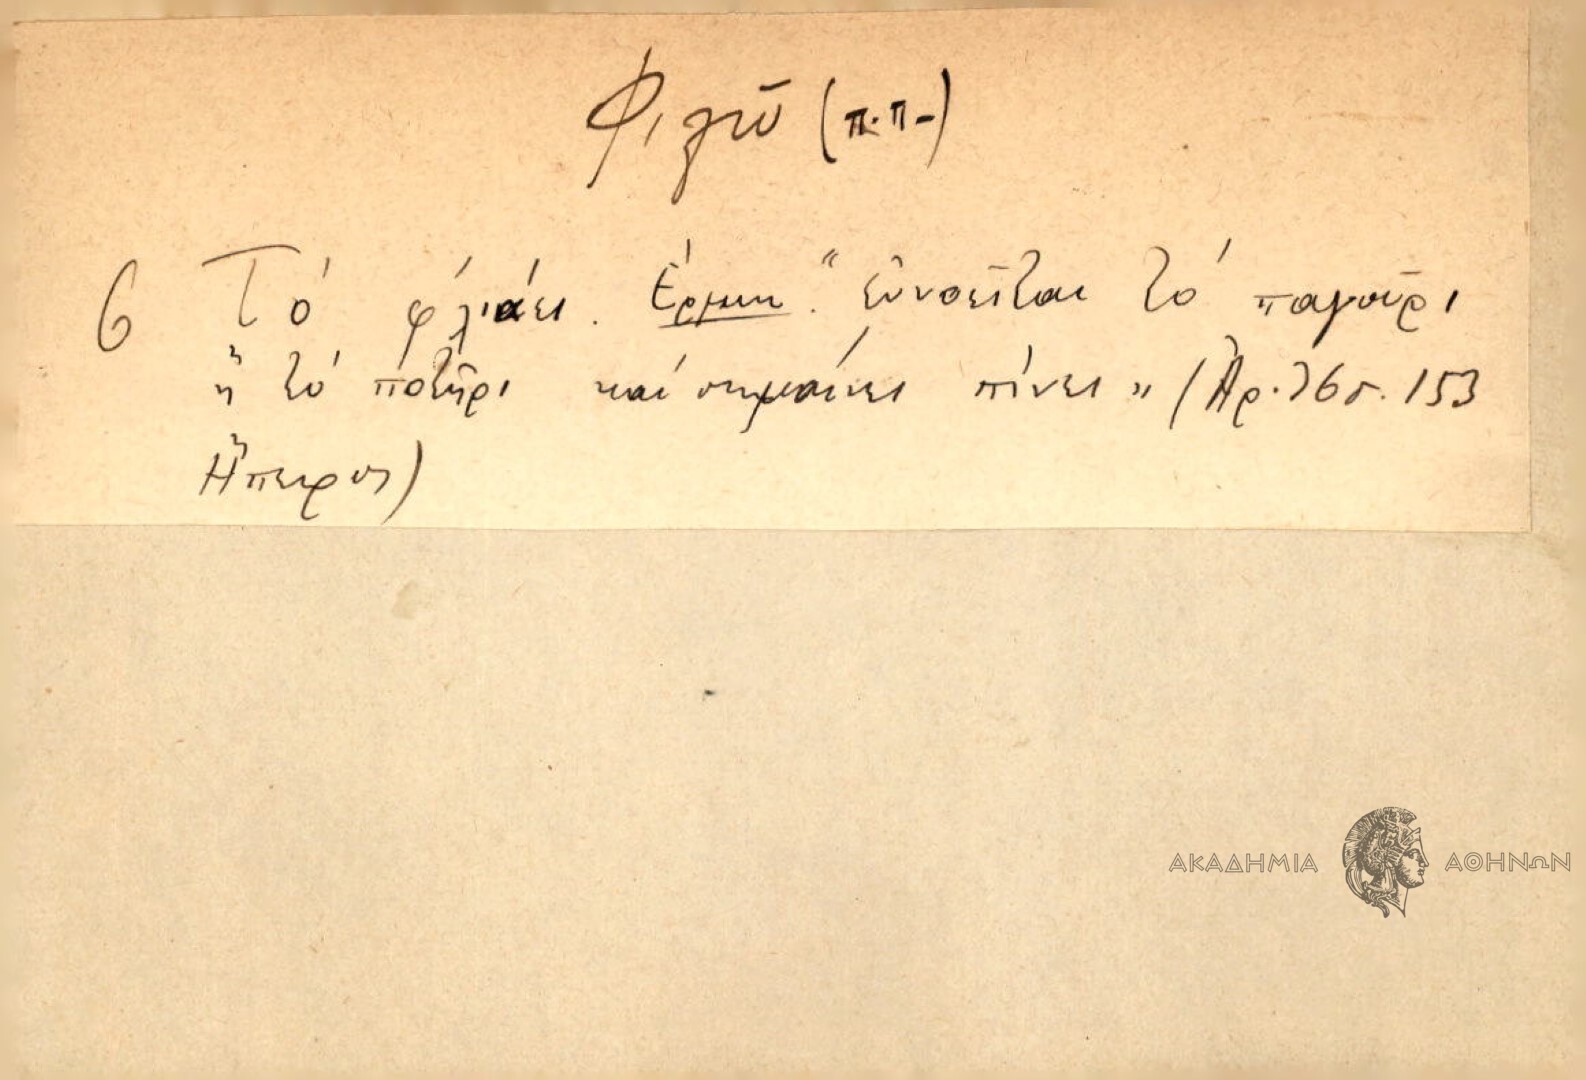 Φιλῶ (π.π.)
6 Τό φιλάει. Ἑρμην. "ἐννοεῖται τό παγοῦρι
ἤ τό ποτῆρι καί σημαίνει πίνει" (Ἀρ. 765. 153
Ἤπειρος)
ΑΚΑΔΗΜΙΑ ΑΘΗΝΩΝ